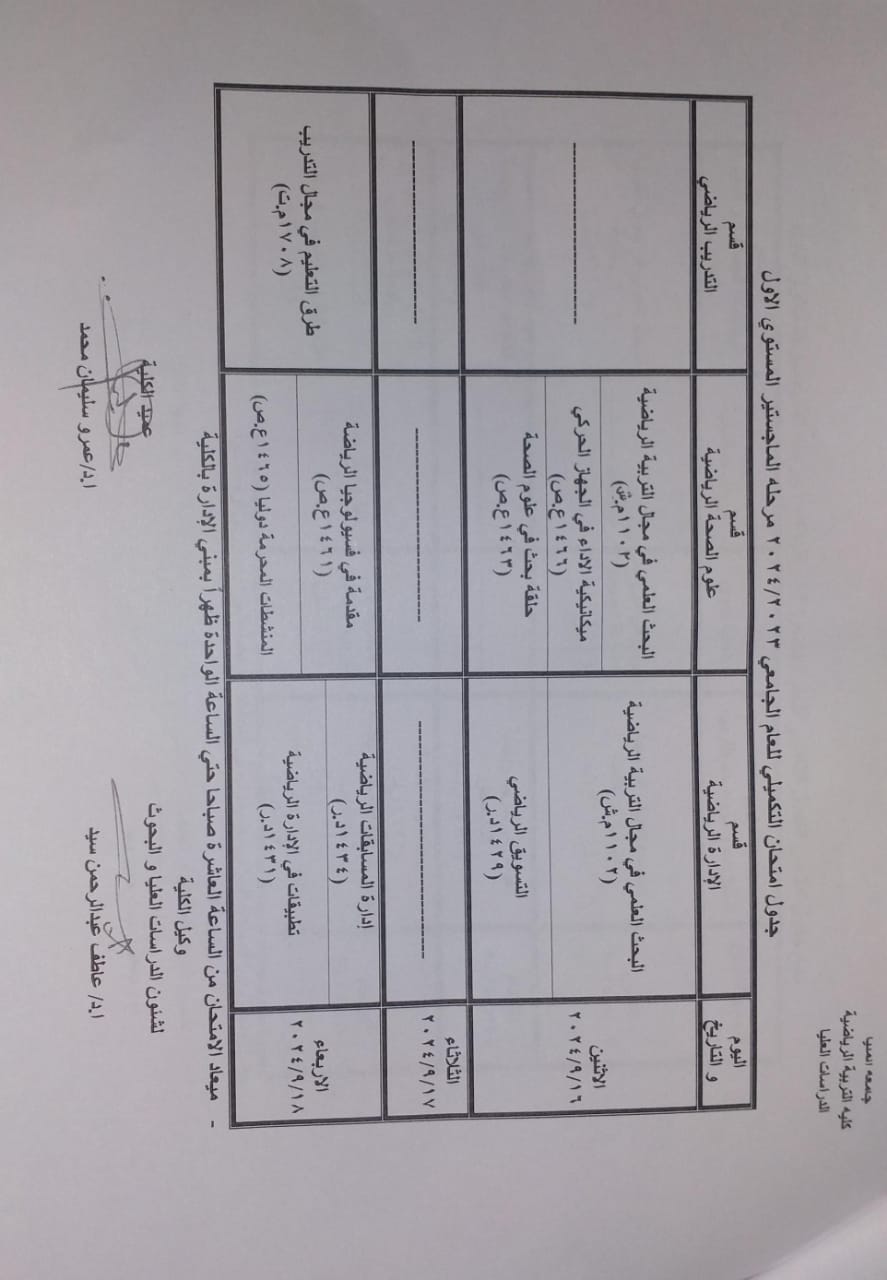 جامعة المنيا
كلية التربية الرياضية
الدراسات العليا
جدول امتحان التكميلي للعام الجامعي ٢٠٢٤/٢٠٢٣ مرحله الماجستير المستوي الاول
اليوم و التاريخ
قسم الإدارة الرياضية
قسم علوم الصحة الرياضية
قسم التدريب الرياضي
الاثنين
٢٠٢٤/٩/١٦
البحث العلمي في مجال التربية الرياضية
(١١٠٢م.ش)
التسويق الرياضي
(١٤٢٩د.ر)
البحث العلمي في مجال التربية الرياضية
(١١٠٢م.ش)
ميكانيكية الاداء في الجهاز الحركي
(١٤٦٦ع.ص)
حلقة بحث في علوم الصحة
(١٤٦٣ع.ص)
-----------------------
الثلاثاء
٢٠٢٤/٩/١٧
-----------------------
-----------------------
-----------------------
الاربعاء
٢٠٢٤/٩/١٨
إدارة المسابقات الرياضية
(١٤٣٤د.ر)
تطبيقات في الإدارة الرياضية
(١٤٣١د.ر)
مقدمة في فسيولوجيا الرياضة
(١٤٦١ع.ص)
المنشطات المحرمة دوليا (١٤٦٥ع.ص)
طرق التعليم في مجال التدريب
(١٧٠٨م.ت)
- ميعاد الامتحان من الساعة العاشرة صباحا حتي الساعة الواحدة ظهراً بمبني الإدارة بالكلية
وكيل الكلية
لشئون الدراسات العليا و البحوث
ا.د/ عاطف عبدالرحمن سيد
عميد الكلية
ا.د/عمرو سليمان محمد